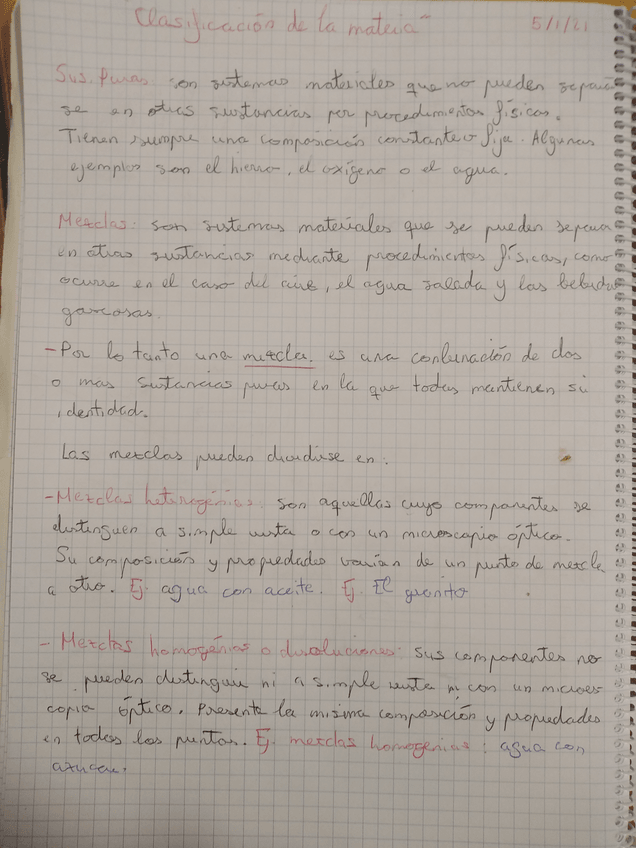 "Clasificación de la materia" 5/1/21
Sus. Puras: son sistemas materiales que no pueden separar
se en otras sustancias por procedimientos físicos.
Tienen siempre una composición constante o fija. Algunas
ejemplos son el hierro, el oxígeno o el agua.
Mezclas: son sistemas materiales que se pueden separar
en otras sustancias mediante procedimientos físicos, como
ocurre en el caso del aire, el agua salada y las bebidas
gaseosas.
-Por lo tanto una mezcla. es una conbinación de dos
o mas sustancias puras en la que todas mantienen su
identidad.
Las mezclas pueden dividirse en:
-Mezclas heterogénias: son aquellas cuyo componentes se
distinguen a simple vista o con un microscopio óptico.
Su composición y propiedades varían de un punto de mezcla
a otro. Ej. agua con aceite. Ej. El granito
- Mezclas homogénias o disoluciones: sus componentes no
se pueden distinguir ni a simple vista ni con un microes
copio óptico. Presenta la misma composición y propiedades
en todos los puntos. Ej. mezclas homogenias: agua con
azucar.